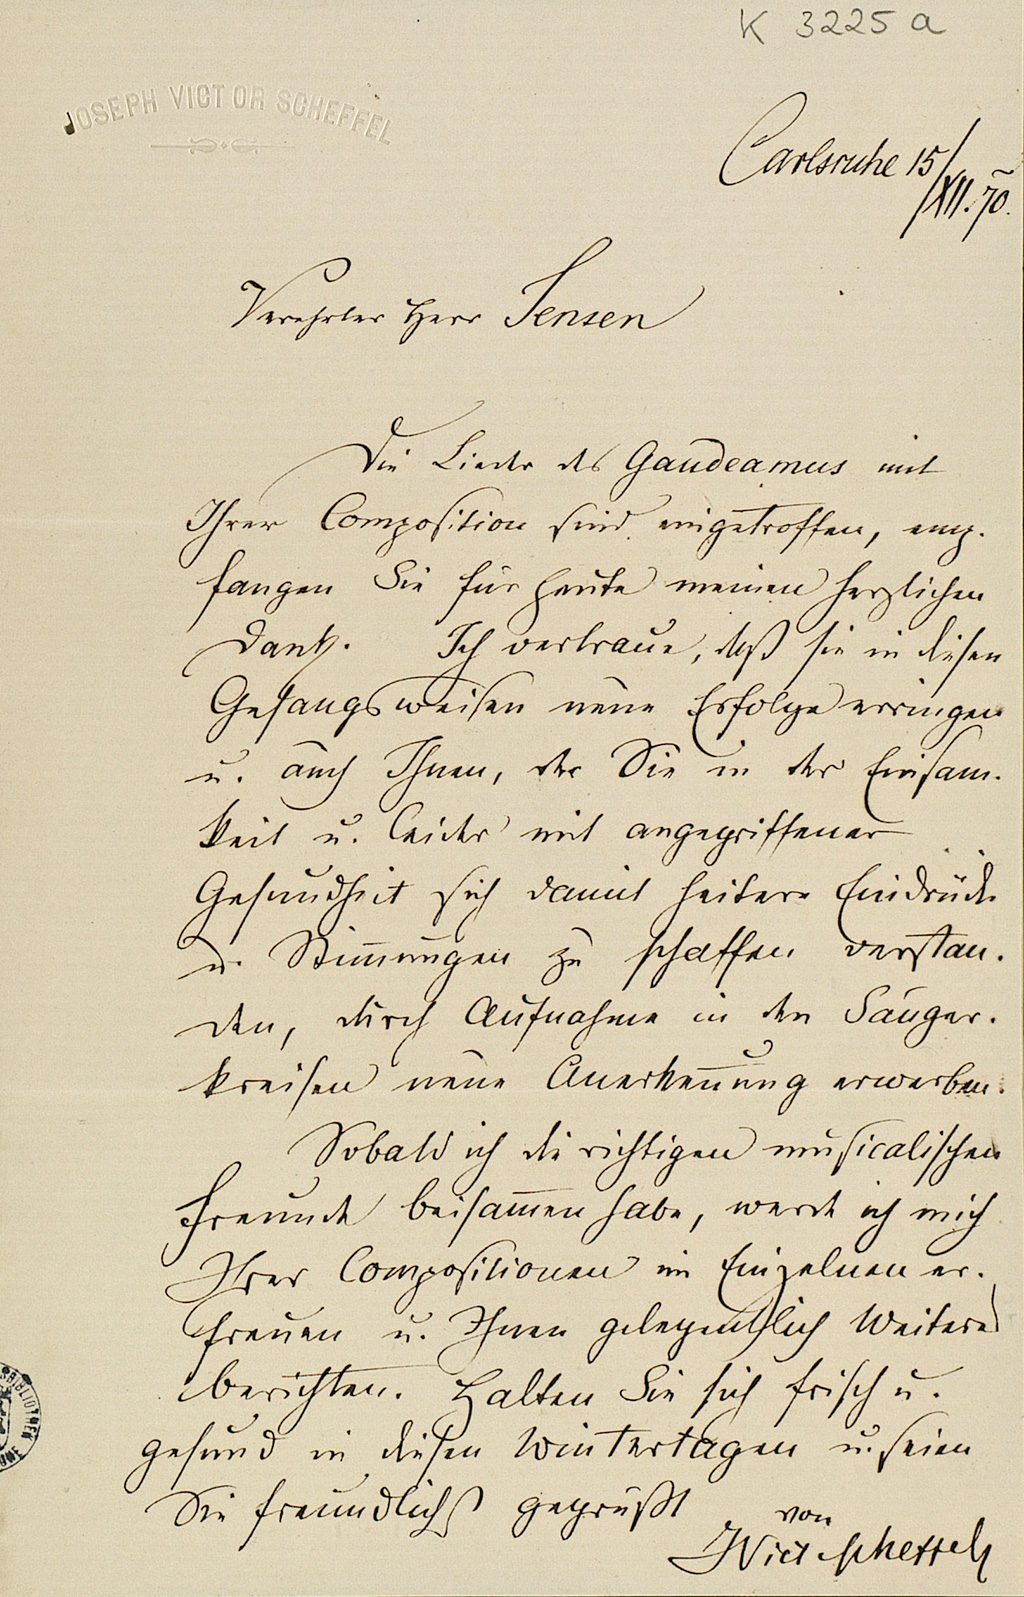 K 3225 a
JOSEPH VICTOR SCHEFFEL
Carlsruhe 15/XII. 70.
Verehrter Herr Jensen
Die Lieder des Gaudeamus mit
Ihrer Composition sind eingetroffen, emp-
fangen Sie für heute meinen herzlichen
Dank. Ich vertraue, daß sie in diesen
Gesangsweisen neue Erfolge erringen
u. auch Ihnen, der Sie in der Einsam-
keit u. leider mit angegriffener
Gesundheit sich damit heitere Eindrücke
u. Stim̅ungen zu schaffen verstan-
den, durch Aufnahme in den Sänger-
kreisen neue Anerken̅ung erwerben.
Sobald ich die richtigen musicalischen
Freunde beisam̅en habe, werde ich mich
Ihrer Compositionen im Einzelnen er-
freuen u. Ihnen gelegentlich Weiteres
berichten. Halten Sie sich frisch u.
gesund in diesen Wintertagen u. seien
Sie freundlichst gegrüßt
von
JVict Scheffel